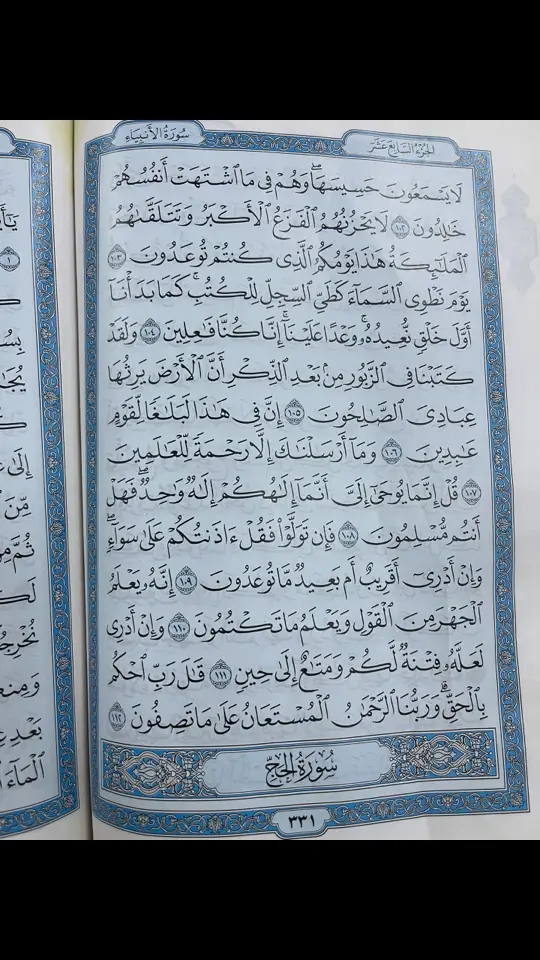 الجزء السابع عشر
سورة الأنبياء
لَا يَسْمَعُونَ حَسِيسَهَا ۖ وَهُمْ فِي مَا ٱشْتَهَتْ أَنفُسُهُمْ
خَٰلِدُونَ ١٠٢ لَا يَحْزُنُهُمُ ٱلْفَزَعُ ٱلْأَكْبَرُ وَتَتَلَقَّىٰهُمُ
ٱلْمَلَٰٓئِكَةُ هَٰذَا يَوْمُكُمُ ٱلَّذِي كُنتُمْ تُوعَدُونَ ١٠٣
يَوْمَ نَطْوِي ٱلسَّمَآءَ كَطَيِّ ٱلسِّجِلِّ لِلْكُتُبِ ۚ كَمَا بَدَأْنَآ
أَوَّلَ خَلْقٍ نُّعِيدُهُۥ ۚ وَعْدًا عَلَيْنَآ ۚ إِنَّا كُنَّا فَٰعِلِينَ ١٠٤ وَلَقَدْ
كَتَبْنَا فِي ٱلزَّبُورِ مِنۢ بَعْدِ ٱلذِّكْرِ أَنَّ ٱلْأَرْضَ يَرِثُهَا
عِبَادِيَ ٱلصَّٰلِحُونَ ١٠٥ إِنَّ فِي هَٰذَا لَبَلَٰغًا لِّقَوْمٍ
عَٰبِدِينَ ١٠٦ وَمَآ أَرْسَلْنَٰكَ إِلَّا رَحْمَةً لِّلْعَٰلَمِينَ
١٠٧ قُلْ إِنَّمَا يُوحَىٰٓ إِلَيَّ أَنَّمَآ إِلَٰهُكُمْ إِلَٰهٌ وَٰحِدٌ ۖ فَهَلْ
أَنتُم مُّسْلِمُونَ ١٠٨ فَإِن تَوَلَّوْا۟ فَقُلْ ءَاذَنتُكُمْ عَلَىٰ سَوَآءٍ ۖ
وَإِنْ أَدْرِيٓ أَقَرِيبٌ أَم بَعِيدٌ مَّا تُوعَدُونَ ١٠٩ إِنَّهُۥ يَعْلَمُ
ٱلْجَهْرَ مِنَ ٱلْقَوْلِ وَيَعْلَمُ مَا تَكْتُمُونَ ١١٠ وَإِنْ أَدْرِي
لَعَلَّهُۥ فِتْنَةٌ لَّكُمْ وَمَتَٰعٌ إِلَىٰ حِينٍ ١١١ قَٰلَ رَبِّ ٱحْكُم
بِٱلْحَقِّ ۗ وَرَبُّنَا ٱلرَّحْمَٰنُ ٱلْمُسْتَعَانُ عَلَىٰ مَا تَصِفُونَ ١١٢
سورة الحج
٣٣١